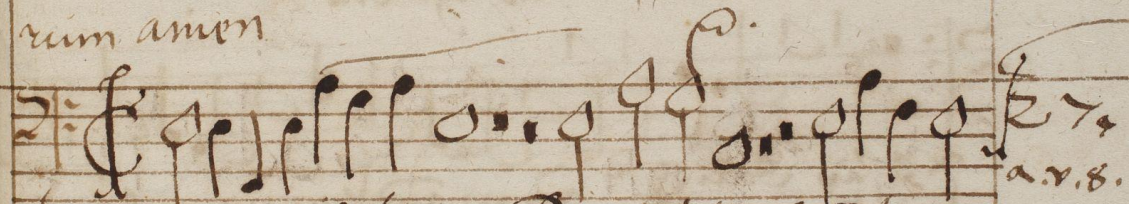 rum amen
a.v.8.